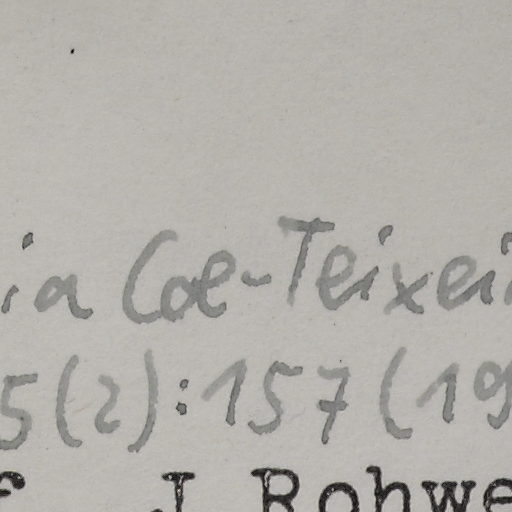 ia Coe-Teixei
5(2):157(19
f. J Rohwe